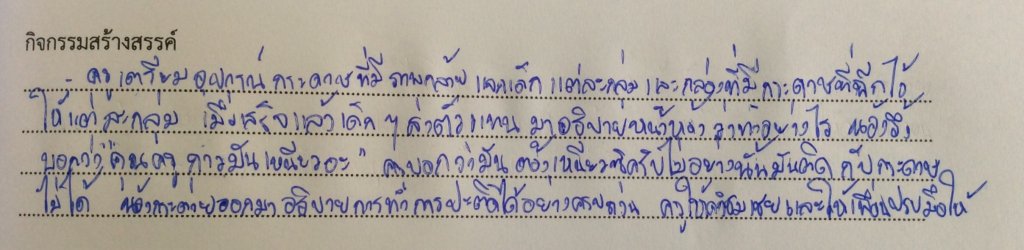 กิจกรรมสร้างสรรค์
ครูเตรียมอุปกรณ์ กระดาษที่มีภาพกล้วย แจกเด็ก แต่ละกลุ่ม และกล่องที่มีกระดาษที่ฉีกไว้
ให้แต่ละกลุ่ม เมื่อเสร็จแล้วเด็กๆ ส่งตัวแทน มาอธิบายหน้าห้อง ว่าทำอย่างไร น้องวิว
บอกว่า "คุณครู กาวมันเหนียวอะ" ครูบอกว่ามัน ต้องเหนียวซิครับไม่อย่างนั้นมันติด กับกระดาษ
ไม่ได้ น้องกะตายออกมา อธิบายการทำ การปะติดได้อย่างครบถ้วน ครูให้คำชมเชยและให้เพื่อนปรบมือให้